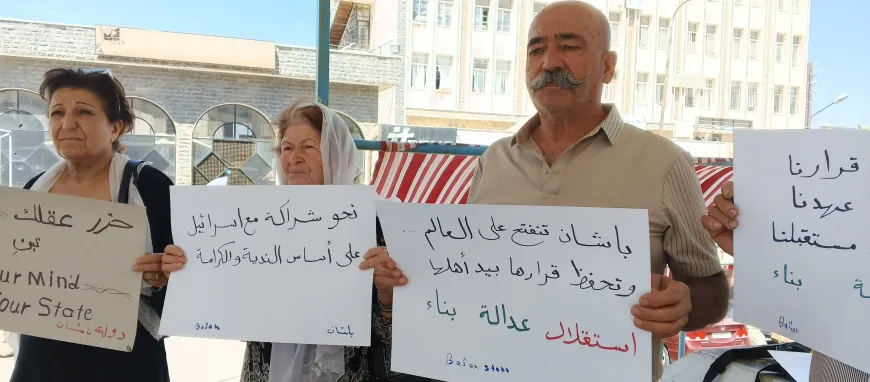 حرر عقلك
تبنِ
our Mind
our State
دولة باشان
نحو شراكة مع اسرائيل
على أساس الندية والكرامة
Bašan
باشان
باشان تنفتح على العالم ...
وتحفظ قرارها بيد أهلها ...
استقلال عدالة بناء
Bašan
قرارنا
عهدنا
مستقبلنا
بناء
Bašan